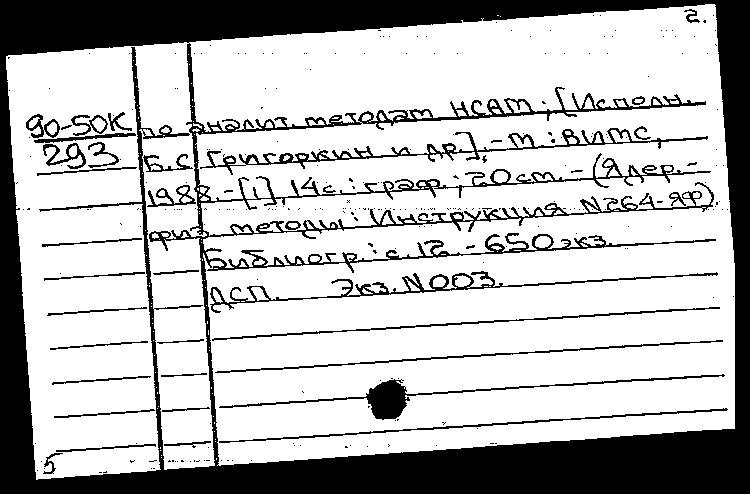 2.
90-50К по аналит. методам НСАМ; [Исполн.
293 Б.С. Григоркин и др.]. - М : ВИМС,
1988. - [1], 14 с. : граф. ; 20 см. - (Ядер.-
физ. методы : Инструкция N264-ЯФ).
Библиогр.: с. 12. - 650 экз.
ДСП. Экз. N003.
5